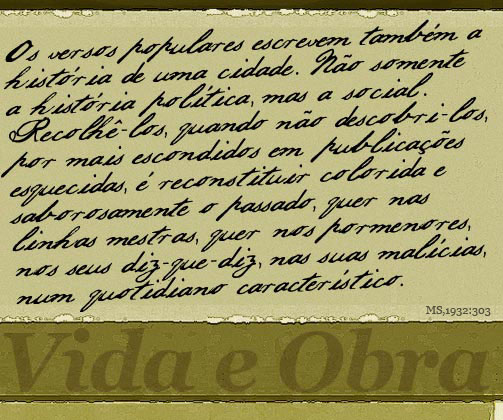 Os versos populares escrevem também a
história de uma cidade. Não somente
a história política, mas a social.
Recolhê-los, quando não descobri-los,
por mais escondidos em publicações
esquecidas, é reconstituir colorida e
saborosamente o passado, quer nas
linhas mestras, quer nos pormenores,
nos seus diz-que-diz, nas suas malícias,
num quotidiano característico.
MS,1932:303
Vida e Obra